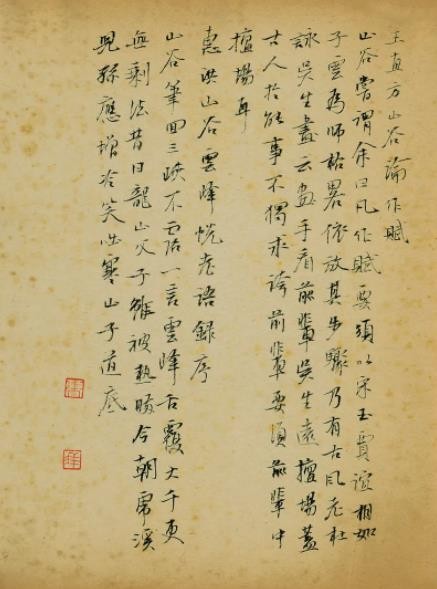 王直方山谷論作賦
山谷嘗謂余曰凡作賦要須以宋玉賈誼相如
子雲為師格畧依放其步驟乃有古風老杜
詠吳生畫云畫手看前輩吳生遠擅場蓋
古人於能事不獨求誇前輩要須前輩中
擅場耳
惠洪山谷雲峰悅老語錄序
山谷筆回三峽不露一言雲峰舌覆大千更
無剩法昔日龍山父子雖被熱瞞今朝虎溪
兒孫應增冷笑寒山子道底